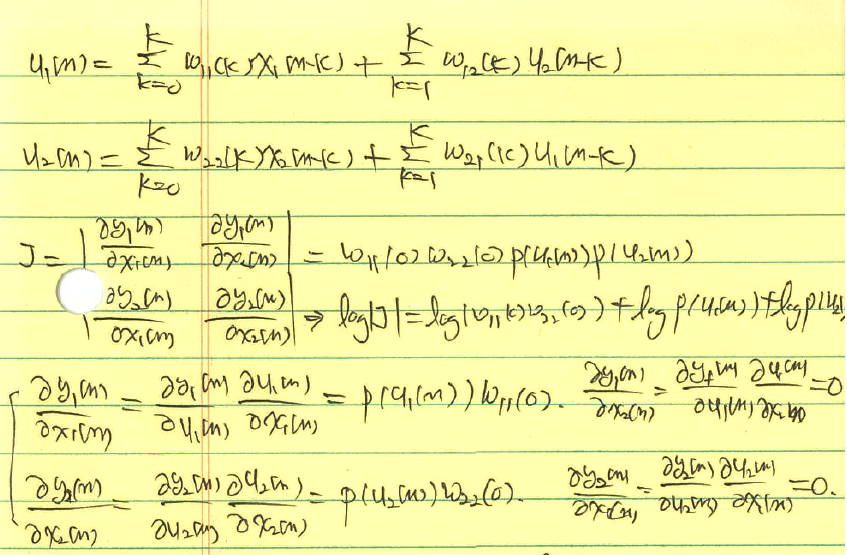 u₁(n) = Σ_{k=0}^{K} w₁₁(k) x₁(n-k) + Σ_{k=1}^{K} w₁₂(k) u₂(n-k)
u₂(n) = Σ_{k=0}^{K} w₂₂(k) x₂(n-k) + Σ_{k=1}^{K} w₂₁(k) u₁(n-k)
J = | ∂y₁(n)/∂x₁(n) ∂y₁(n)/∂x₂(n) | = w₁₁(0) w₂₂(0) p(u₁(n)) p(u₂(n))
| ∂y₂(n)/∂x₁(n) ∂y₂(n)/∂x₂(n) | ⇒ log|J| = log(w₁₁(0) w₂₂(0)) + log p(u₁(n)) + log p(u₂
∂y₁(n)/∂x₁(n) = ∂y₁(n)/∂u₁(n) ∂u₁(n)/∂x₁(n) = p(u₁(n)) w₁₁(0). ∂y₁(n)/∂x₂(n) = ∂y₁(n)/∂u₁(n) ∂u₁(n)/∂x₂(n) = 0
∂y₂(n)/∂x₂(n) = ∂y₂(n)/∂u₂(n) ∂u₂(n)/∂x₂(n) = p(u₂(n)) w₂₂(0). ∂y₂(n)/∂x₁(n) = ∂y₂(n)/∂u₂(n) ∂u₂(n)/∂x₁(n) = 0.